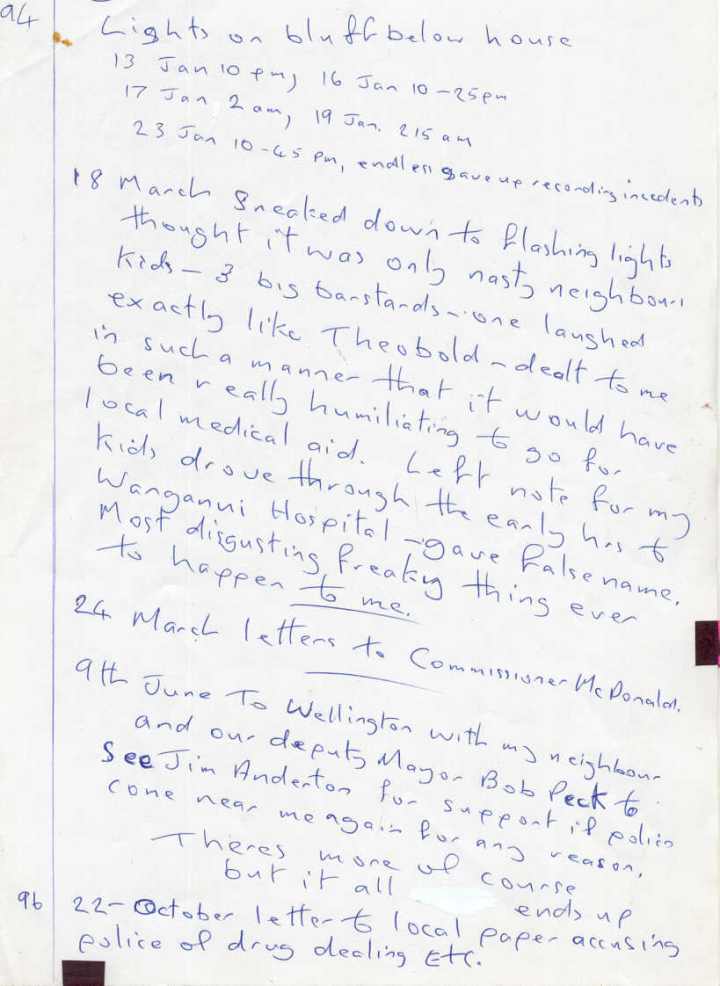 94 Lights on bluff below house
13 Jan 10 pm, 16 Jan 10-25pm
17 Jan, 2 am, 19 Jan. 215 am
23 Jan 10-45 pm, endless gave up recording incedents
18 March Sneaked down to flashing lights
thought it was only nasty neighbours
kids - 3 big barstards - one laughed
exactly like Theobold - dealt to me
in such a manner that it would have
been really humiliating to go for
local medical aid. Left note for my
kids, drove through the early hrs to
Wanganui Hospital - gave false name.
Most disgusting freaky thing ever
to happen to me.
24 March letters to Commissioner McDonald.
9th June To Wellington with my neighbour
and our deputy Mayor Bob Peck to
See Jim Anderton for support if police
come near me again for any reason,
Theres more of course
but it all ends up
96 22-October letter to local paper accusing
police of drug dealing Etc.